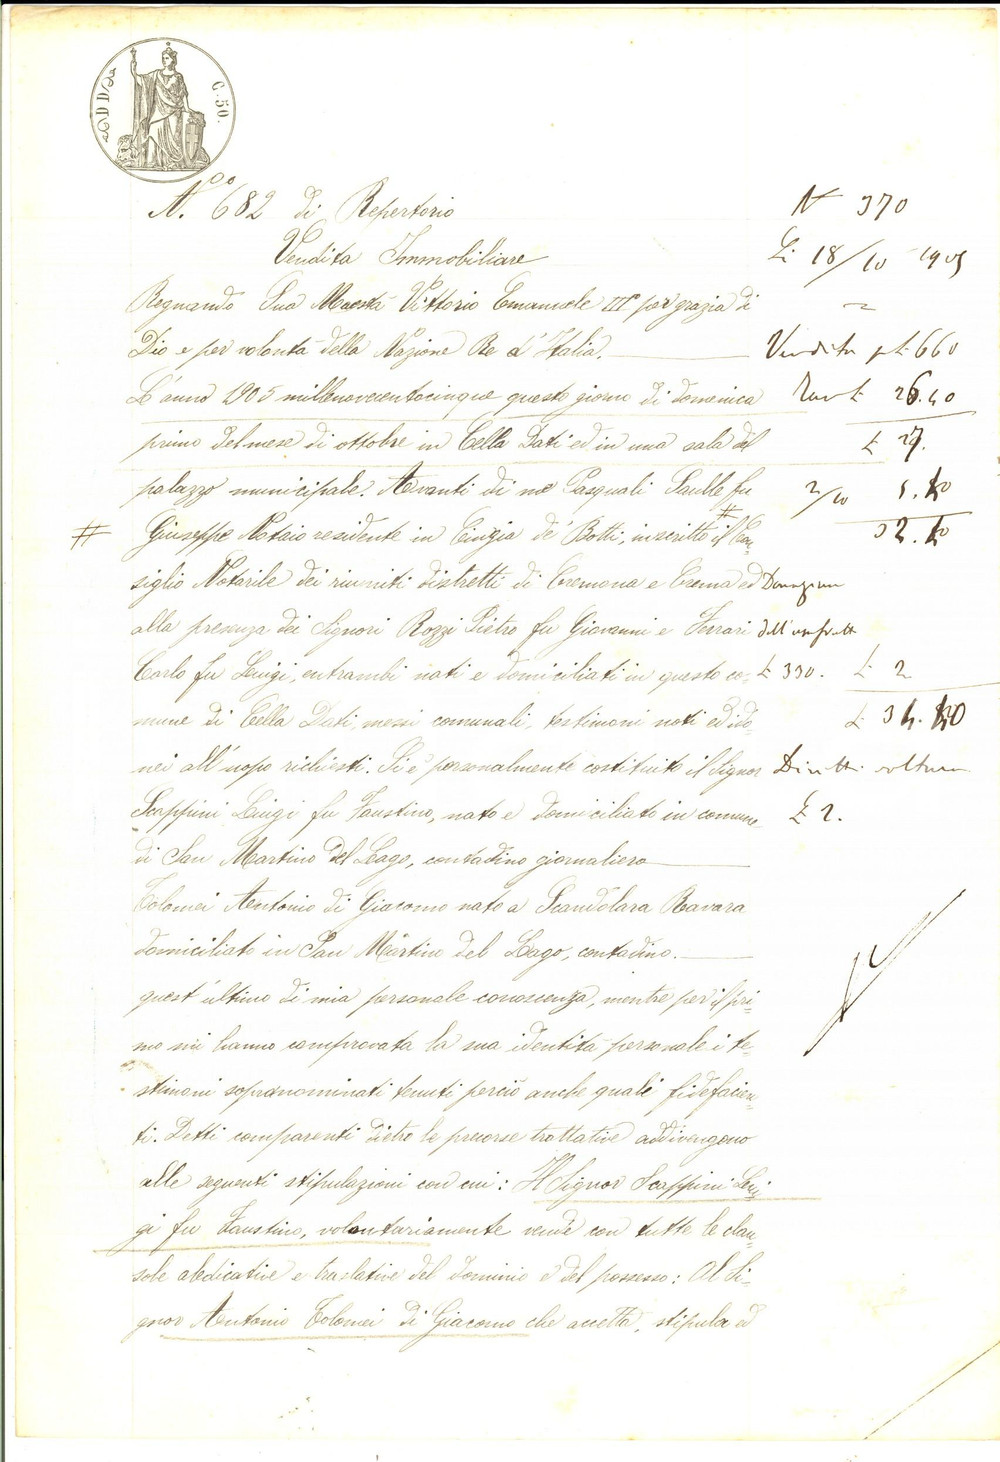 C. 50.
N.° 682 di Repertorio
Vendita Immobiliare
Regnando Sua Maestà Vittorio Emanuele III° per grazia di
Dio e per volontà della Nazione Re d'Italia.
L'anno 1905 millenovecentocinque questo giorno di domenica
primo del mese di ottobre in Cella Dati ed in una sala del
palazzo municipale. Avanti di me Pasquali Saulle fu
# Giuseppe Notaio residente in Cingia de' Botti, inscritto # il Con-
siglio Notarile dei riuniti distretti di Cremona e Crema ed
alla presenza dei Signori Rozzi Pietro fu Giovanni e Ferrari
Carlo fu Luigi, entrambi nati e domiciliati in questo co-
mune di Cella Dati, messi comunali, testimoni noti ed ido-
nei all'uopo richiesti. Si è personalmente costituito il Signor
Scappini Luigi fu Faustino, nato e domiciliato in comune
di San Martino del Lago, contadino giornaliero
Tolomei Antonio di Giacomo nato a Scandolara Ravara
domiciliato in San Martino del Lago, contadino.
quest'ultimo di mia personale conoscenza, mentre per il pri-
mo mi hanno comprovata la sua identità personale i te-
stimoni sopranominati tenuti perciò anche quali fidefacien-
ti. Detti comparenti dietro le precorse trattative addivengono
alle seguenti stipulazioni con cui: Il Signor Scappini Lui-
gi fu Faustino, volontariamente vende con tutte le clau-
sole abdicative e traslative del dominio e del possesso: Al Si-
gnor Antonio Tolomei di Giacomo che accetta, stipula ed
N 370
Li 18/10 1905
Vendita p £ 660
£ 26.40
£ 27.
2/10 5.40
32.40
Donazione
dell'usufrutto
£ 330. £ 2
£ 34.40
Diritti voltura
£ 2.